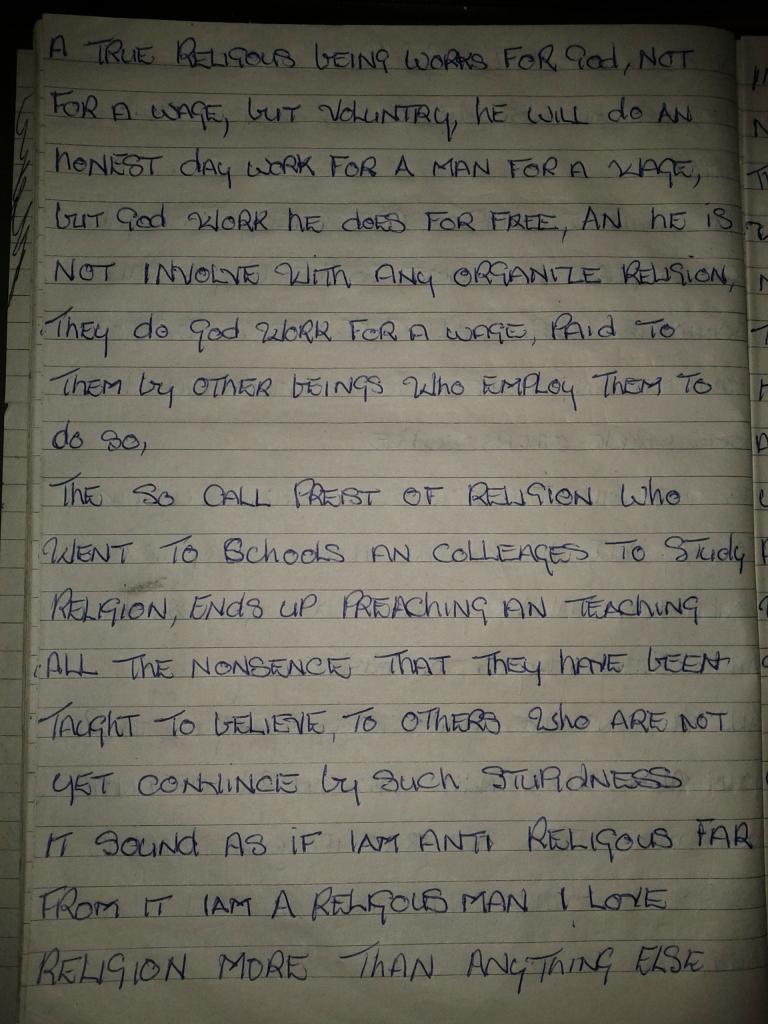 A TRUE RELIGOUS bEING WORKS FOR God, NOT
FOR A WAGE, bUT VOLUNTRY, hE WILL do AN
hONEST dAy WORK FOR A MAN FOR A WAGE,
bUT God WORK hE doES FOR FREE, AN hE IS
NOT INVOLVE WITh ANy ORGANIZE RELIGION,
ThEy do god WORK FOR A WAGE, PAId TO
ThEM by OTHER bEINGS Who EMPLOY ThEM TO
do so,
ThE SO CALL PREIST OF RELIGION Who
WENT TO SchoolS AN COLLEAGES TO STudy
RELIGION, ENdS UP PREAChING AN TEACHING
ALL ThE NONSENCE ThAT ThEy hAVE bEEN
TAUGhT TO bELIEVE, TO OTHERS Who ARE NOT
yET CONVINCE by Such STUPIdNESS
IT SOUNd AS iF IAM ANTI RELIGOUS FAR
FROM IT IAM A RELIGOUS MAN I LOVE
RELIGION MORE ThAN ANyTHING ELSE